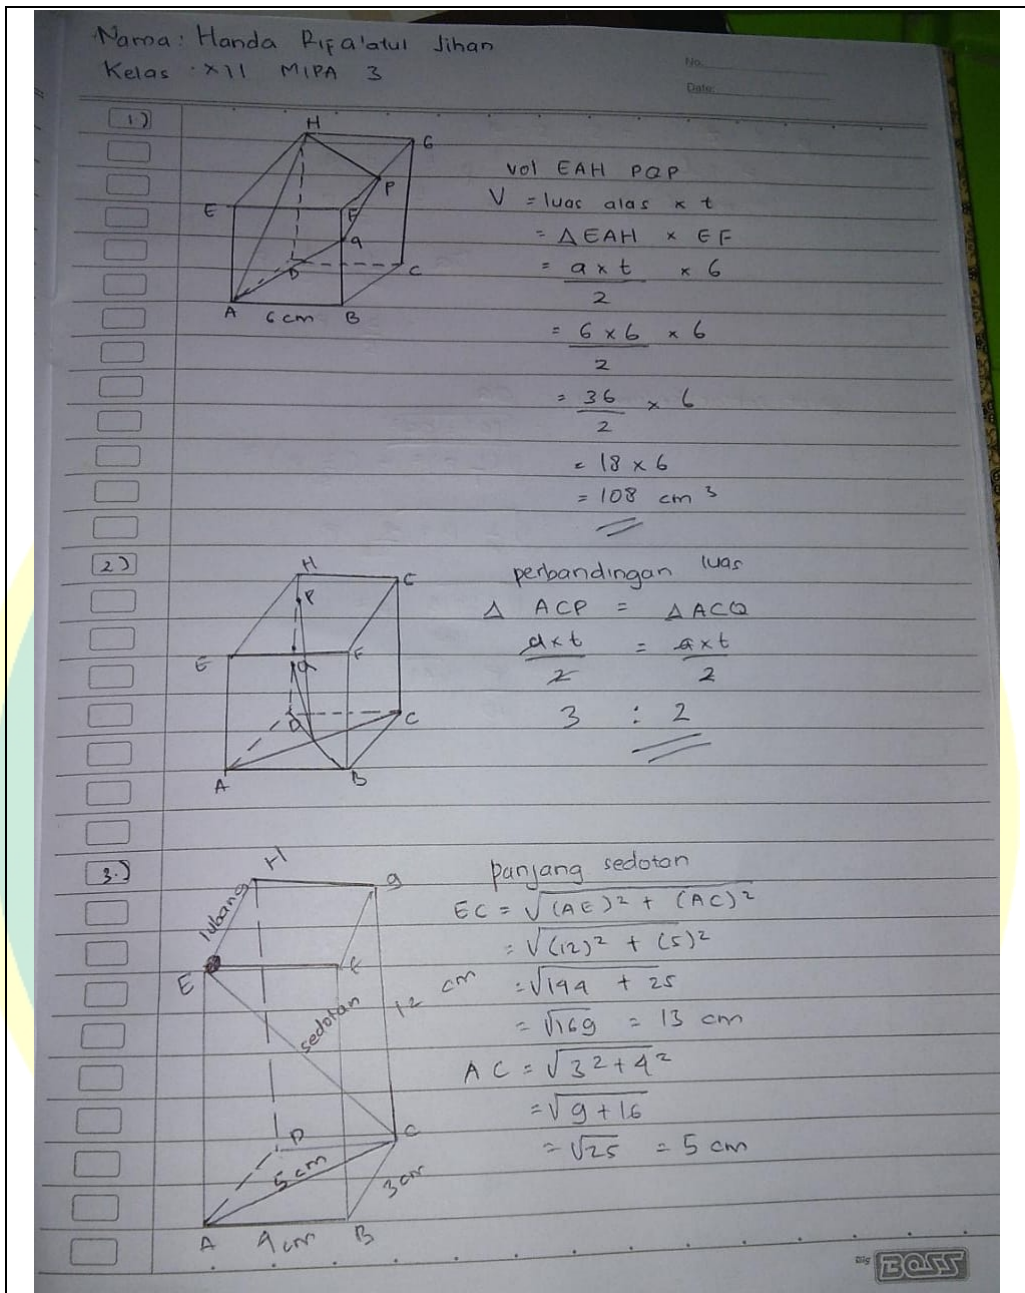 Nama : Handa Rifa'atul Jihan
Kelas : XII MIPA 3
No.
Date:
1.)
H
G
P
E
F
Q
D
C
A
6 cm
B
vol EAH PQP
V = luas alas x t
= △EAH x EF
= a x t / 2 x 6
= 6 x 6 / 2 x 6
= 36 / 2 x 6
= 18 x 6
= 108 cm 3
2)
H
P
E
F
Q
D
C
A
B
perbandingan luas
△ ACP = △ ACQ
a x t / 2 = a x t / 2
3 : 2
3.)
H
g
lubang
E
F
sedotan
12 cm
D
C
5 cm
3 cm
A
4 cm
B
panjang sedotan
EC = √(AE)2 + (AC)2
= √(12)2 + (5)2
= √144 + 25
= √169 = 13 cm
AC = √3 2 + 4 2
= √9 + 16
= √25 = 5 cm
Big BOSS